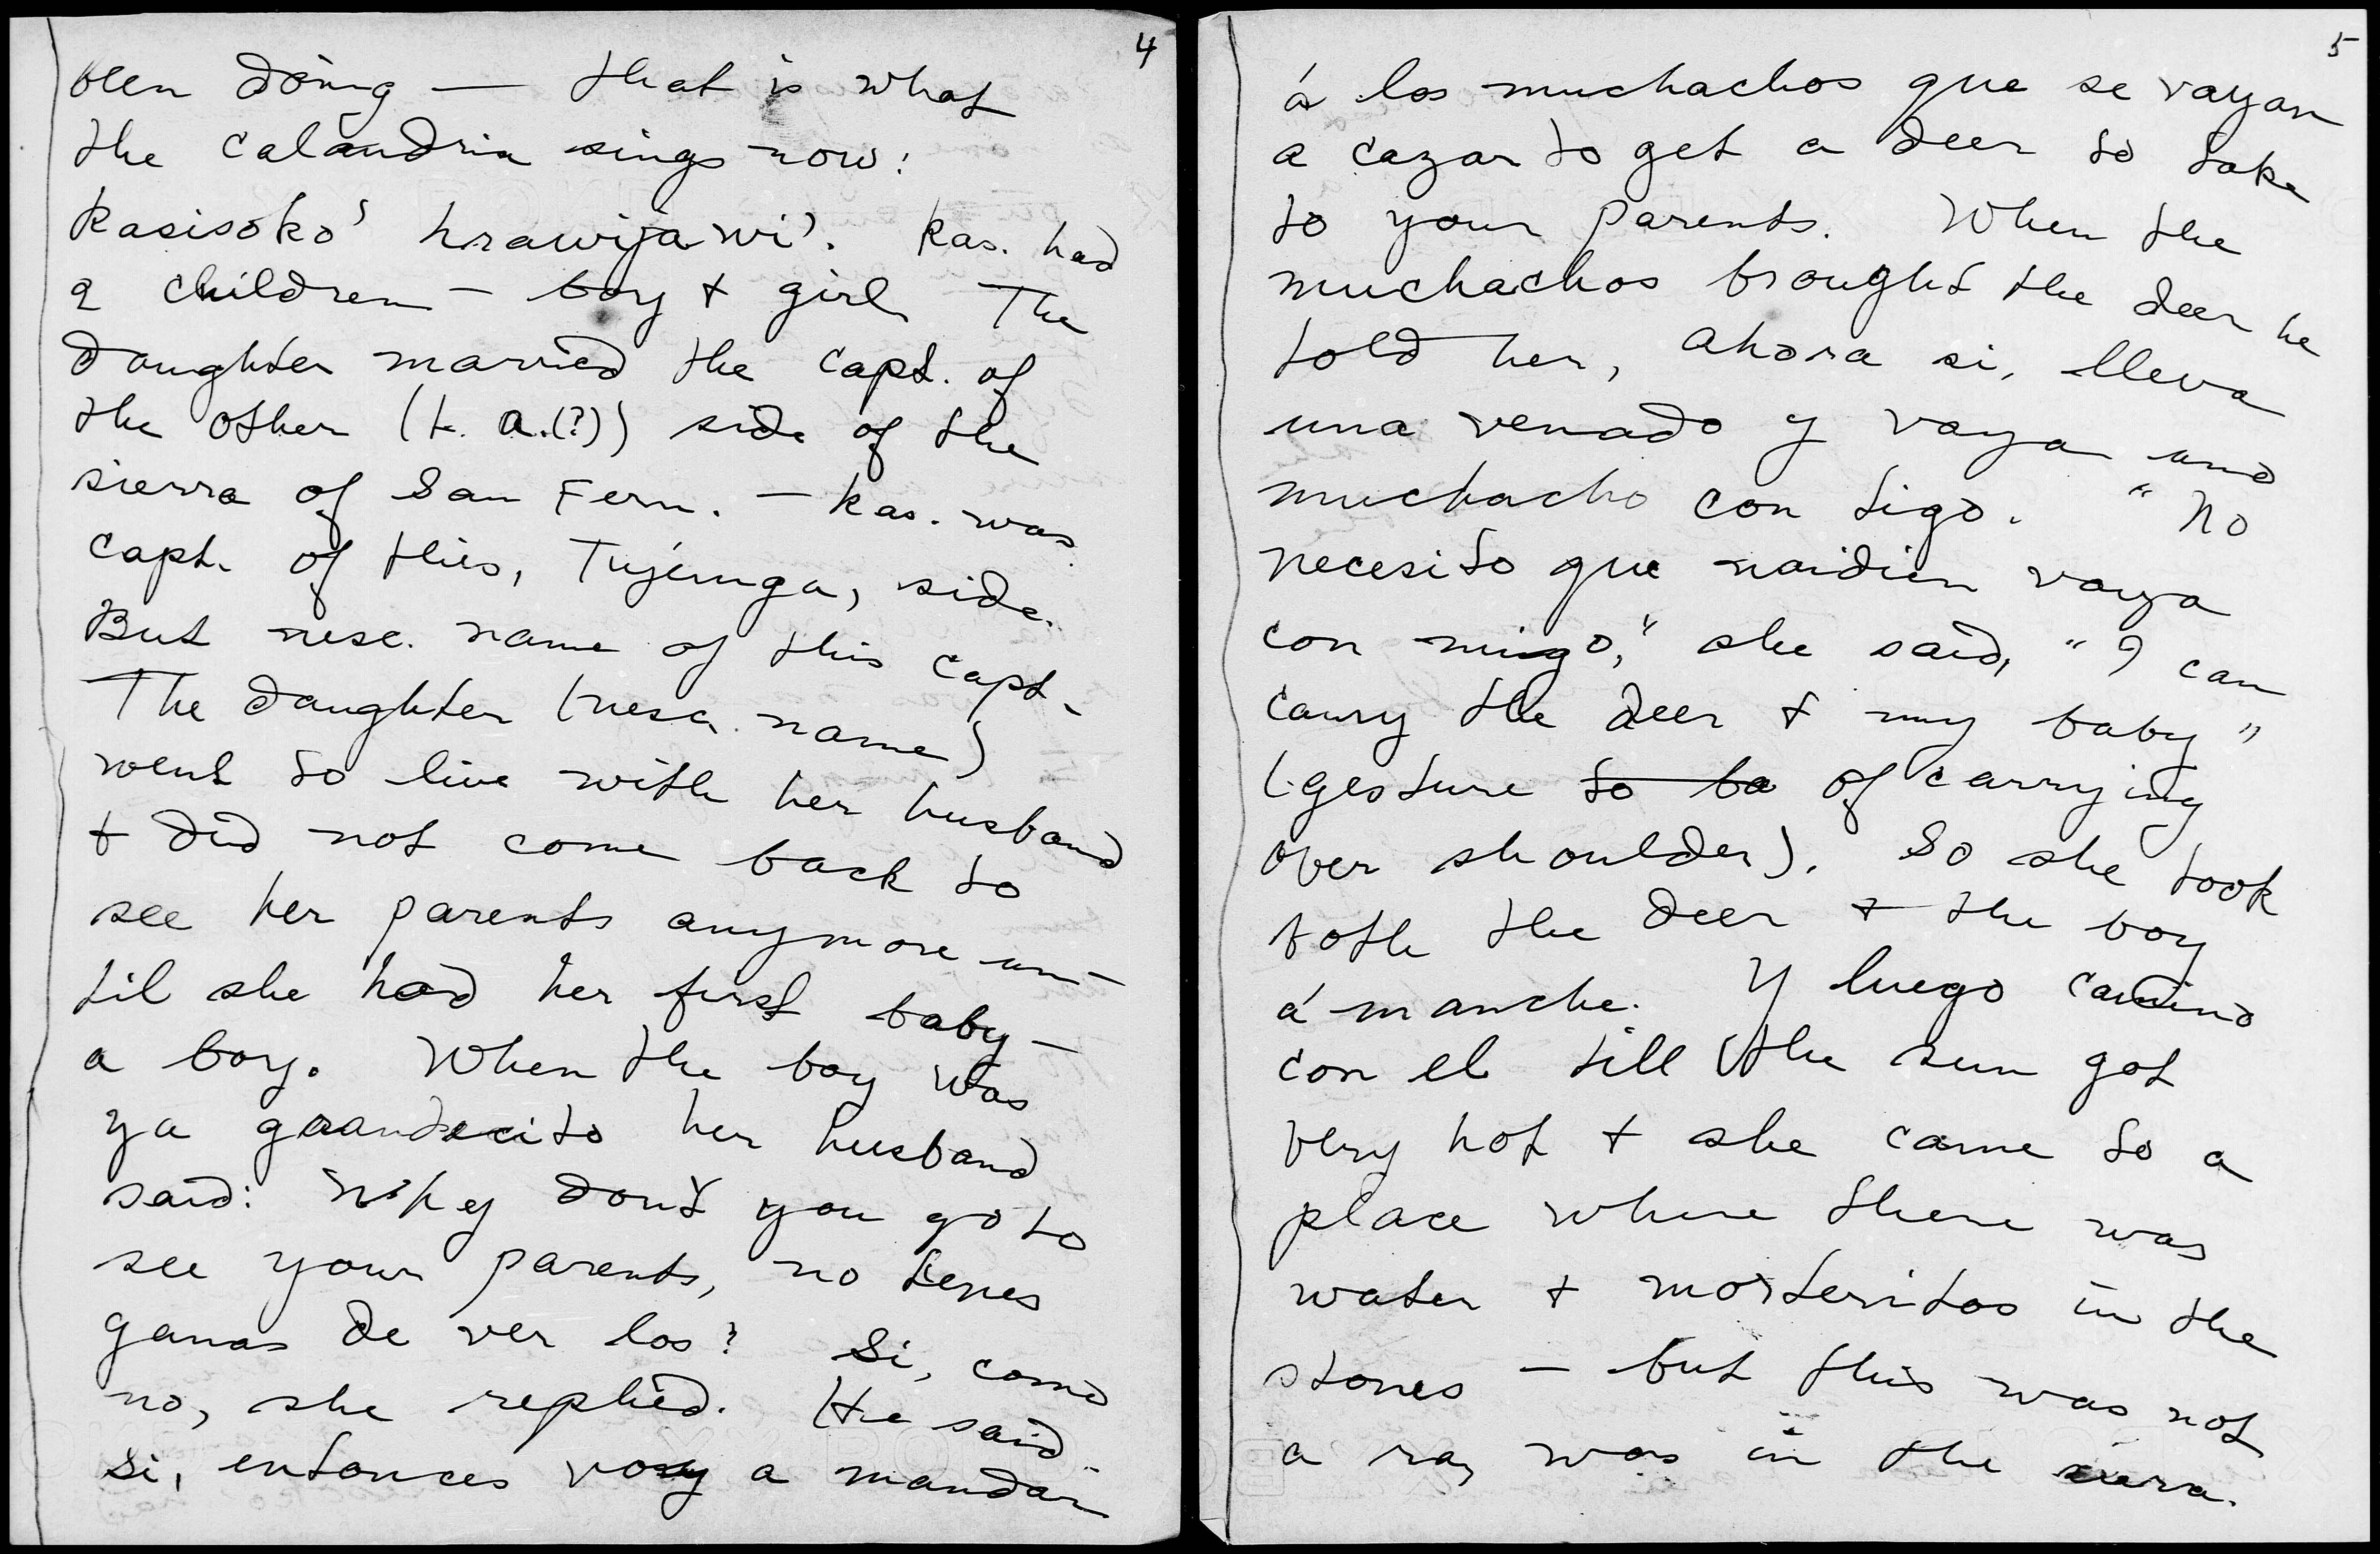 4
been doing — that is what
the calandria sings now:
Kasisoko' hrawijawi'. Kas. had
2 children — boy + girl The
daughter married the capt. of
the other (L. A.(?)) side of the
sierra of San Fern. — Kas. was
capt. of this, Tujunga, side.
But nesc. name of this capt.
The daughter (nesc. name)
went to live with her husband
+ did not come back to
see her parents anymore un-
til she had her first baby —
a boy. When the boy was
ya grandecito her husband
said: Why don't you go to
see your parents, no tenes
ganas de ver los? Si, como
no, she replied. He said
si, entonces voy a mandar
5
á los muchachos que se vayan
a cazar to get a deer to take
to your parents. When the
muchachos brought the deer he
told her, ahora si, lleva
una venado y vaya uno
muchacho con tigo. "No
necesito que naidien vaya
con migo," she said, "I can
carry the deer + my baby"
(gesture to ba of carrying
over shoulder). So she took
both the deer + the boy
á manche. Y luego camino
con el till the sun got
very hot + she came to a
place where there was
water + morteritos in the
stones — but this was not
a ra, was in the sierra.